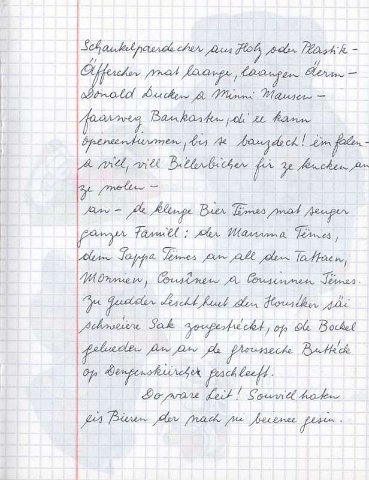 Schaukelpäerdecher aus Holz oder Plastik -
Äffercher mat laange, laangen Äerm -
Donald Ducken a Minni Mausen -
faarweg Baukasten, di ee kann
openeentürmen, bis se bauzdech! ëmfalen -
a vill, vill Billerbicher fir ze kucken an
ze molen -
an - de klenge Bier Tëmes mat senger
ganzer Famill: der Mamma Tëmes,
dem Pappa Tëmes an all den Tattaen,
Monnien, Cousînen a Cousinnen Tëmes.
Zu gudder Lescht huet den Housécker säi
schwéiere Sak zougestréckt, op de Bockel
gelueden an an de groussche Buttéck
op Dengenskirchen geschleeft.
Do ware Leit! Souvill haten
eis Bieren der nach ni beienee gesin.